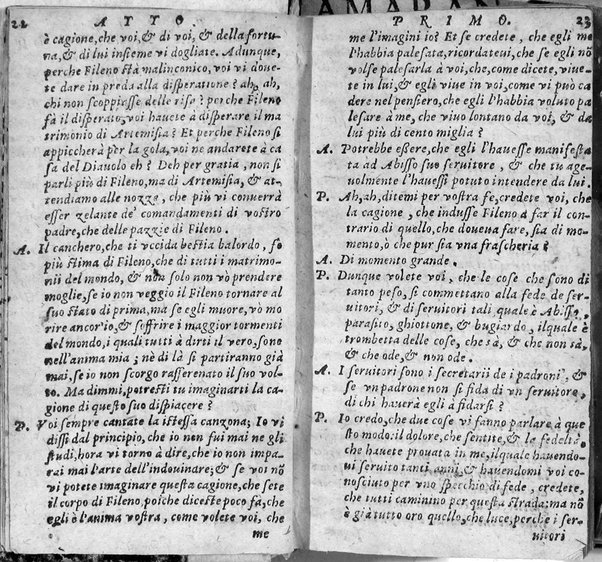 22 ATTO.
è cagione, che voi, & di voi, & della fortu-
na, & di lui insieme vi dogliate. Adunque,
perche Fileno stà malinconico, voi vi doue-
te dare in preda alla disperatione? ah, ah,
chi non scoppiasse delle rise? perche Fileno
fà il disperato, voi hauete à disperare il ma
trimonio di Artemisia? Et perche Fileno si
appiccherà per la gola, voi ne andarete à ca
sa del Diauolo eh? Deh per gratia, non si
parli più di Fileno, ma di Artemisia, & at-
tendiamo alle nozze, che più vi conuerrà
esser zelante de' comandamenti di vostro
padre, che delle pazzie di Fileno.
A. Il canchero, che ti vccida bestia balordo, fo
più stima di Fileno, che di tutti i matrimo-
nii del mondo, & non solo non vò prendere
moglie, se io non veggio il Fileno tornare al
suo stato di prima, ma se egli muore, vò mo
rire ancor'io, & soffrire i maggior tormenti
del mondo, i quali tutti à dirti il vero, sono
nell'anima mia; nè di là si partiranno già
mai, se io non scorgo rasserenato il suo vol-
to. Ma dimmi, potresti tu imaginarti la ca-
gione di questo suo dispiacere?
P. Voi sempre cantate la istessa canzona; Io vi
dissi dal principio, che io non fui mai ne gli
studi, hora vi torno à dire, che io non impa-
rai mai l'arte dell'indouinare; & se voi nõ
vi potete imaginare questa cagione, che sete
il corpo di Fileno, poiche diceste poco fà, che
egli è l'anima vostra, come volete voi, che
me
PRIMO. 23
me l'imagini io? Et se credete, che egli me
l'habbia palesata, ricordateui, che se egli nõ
volse palesarla à voi, che, come dicete, viue-
te in lui, & egli viue in voi, come vi può ca
dere nel pensiero, che egli l'habbia voluto pa
lesare à me, che viuo lontano da voi, & da
lui più di cento miglia?
A. Potrebbe essere, che egli l'hauesse manifesta
ta ad Abisso suo seruitore, & che tu age-
uolmente l'hauessi potuto intendere da lui.
P. Ah, ah, ditemi per vostra fe, credete voi, che
la cagione, che indusse Fileno à far il con-
trario di quello, che doueua fare, sia di mo-
mento, ò che pur sia vna frascheria?
A. Di momento grande.
P. Dunque volete voi, che le cose che sono di
tanto peso, si commettano alla fede de ser-
uitori, & di seruitori tali, quale è Abisso,
parasito, ghiottone, & bugiardo, il quale è
trombetta delle cose, che sà, & che non sà,
& che ode, & non ode.
A. I seruitori sono i secretarii de i padroni, &
se vn padrone non si fida di vn seruitore,
di chi hauerà egli à fidarsi?
P. Io credo, che due cose vi fanno parlare, à que
sto modo. il dolore, che sentite, & la fedeltà,
che hauete prouata in me, il quale hauendo-
ui seruito tanti anni, & hauendomi voi co-
nosciuto per vno specchio di fede, credete,
che tutti caminino per questa strada: ma nõ
è già tutto oro quello, che luce, perche i ser-
uitori